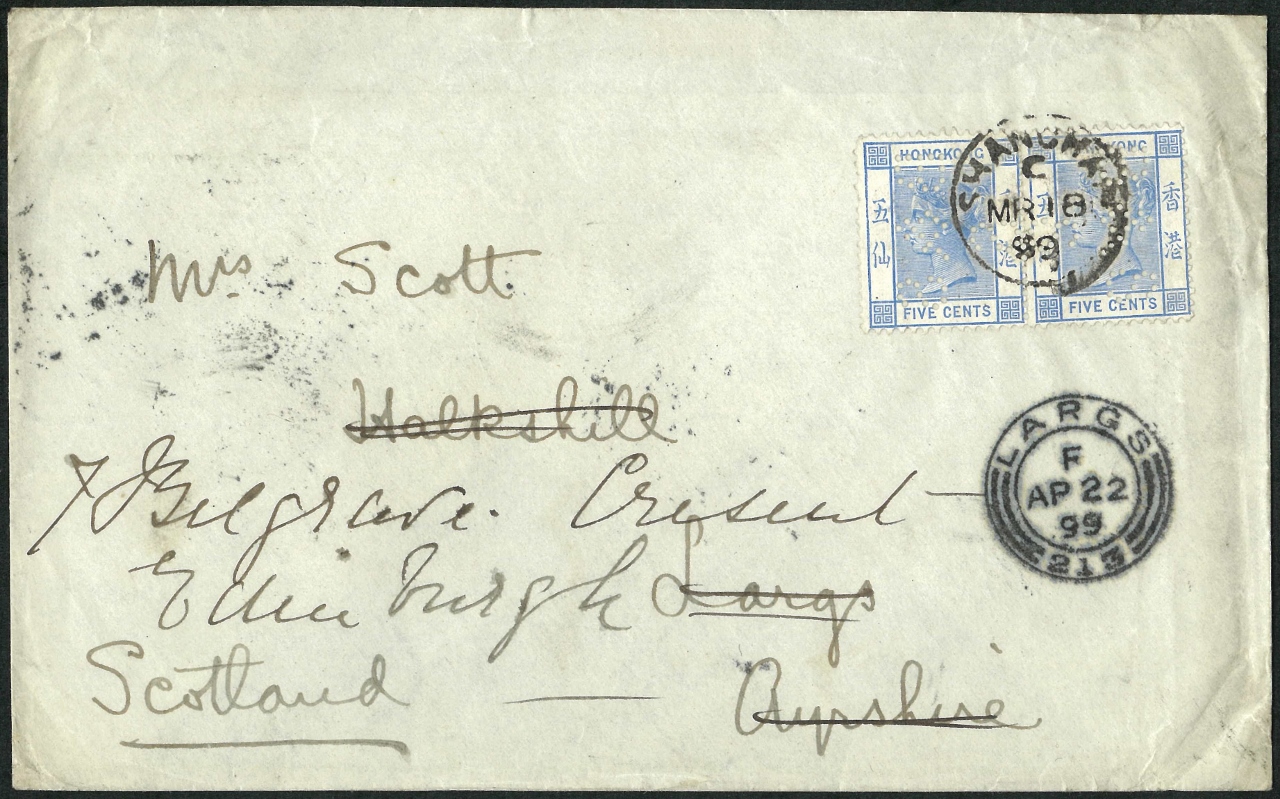 HONGKONG HONGKONG
五仙 香港 五仙 香港
FIVE CENTS FIVE CENTS
SHANGHAI
C
MR 18
99
Mrs Scott
Halkshill
7 Belgrave Cresent
Edinburgh Largs
Scotland Ayrshire
LARGS
F
AP 22
99
213